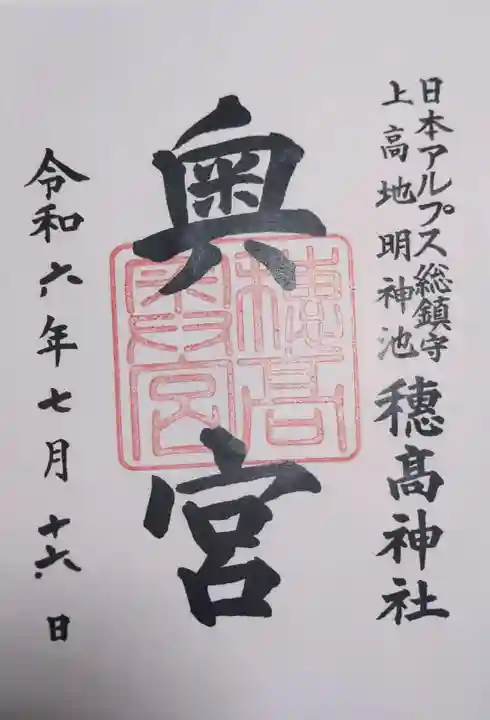 日本アルプス総鎮守
上高地明神池
穂髙神社
奥宮
穂高奥宮
令和六年七月十六日